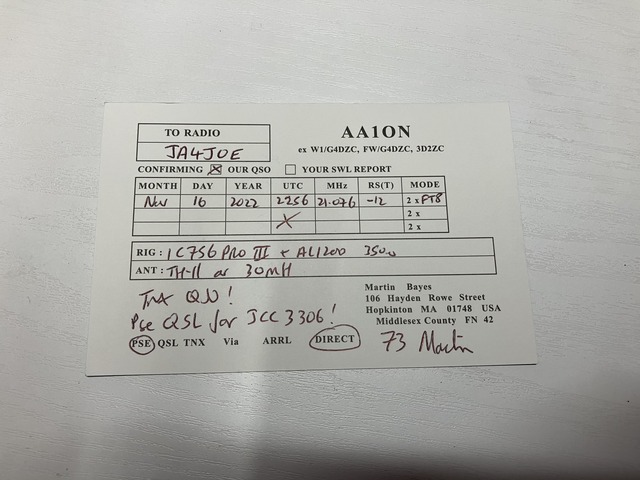 TO RADIO
JA4JOE
AA1ON
ex W1/G4DZC, FW/G4DZC, 3D2ZC
CONFIRMING ☒ OUR QSO ☐ YOUR SWL REPORT
MONTH DAY YEAR UTC MHz RS(T) MODE
Nov 16 2022 2256 21.076 -12 2 x FT8
2 x
2 x
RIG : IC756 PRO III + AL1200 350w
ANT : TH-11 at 30MH
TNX QSO!
Pse QSL for JCC 3306!
PSE QSL TNX Via ARRL DIRECT
Martin Bayes
106 Hayden Rowe Street
Hopkinton MA 01748 USA
Middlesex County FN 42
73 Martin